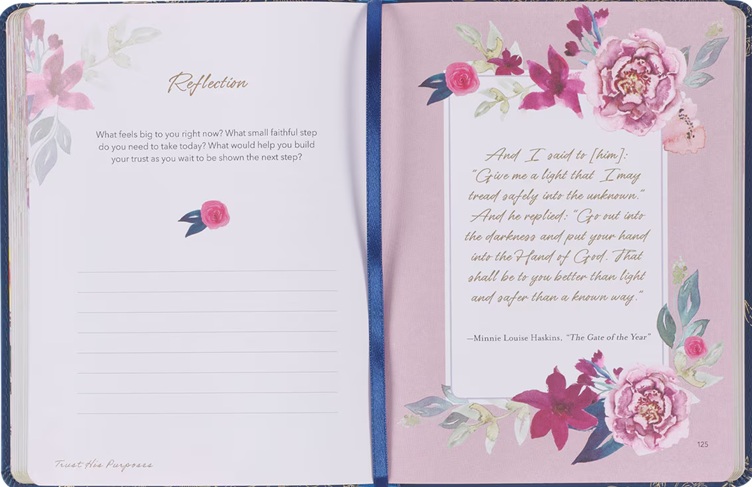 Reflection
What feels big to you right now? What small faithful step
do you need to take today? What would help you build
your trust as you wait to be shown the next step?
Trust His Purposes
And I said to [him]:
“Give me a light that I may
tread safely into the unknown.”
And he replied: “Go out into
the darkness and put your hand
into the Hand of God. That
shall be to you better than light
and safer than a known way.”
—Minnie Louise Haskins, “The Gate of the Year”
125